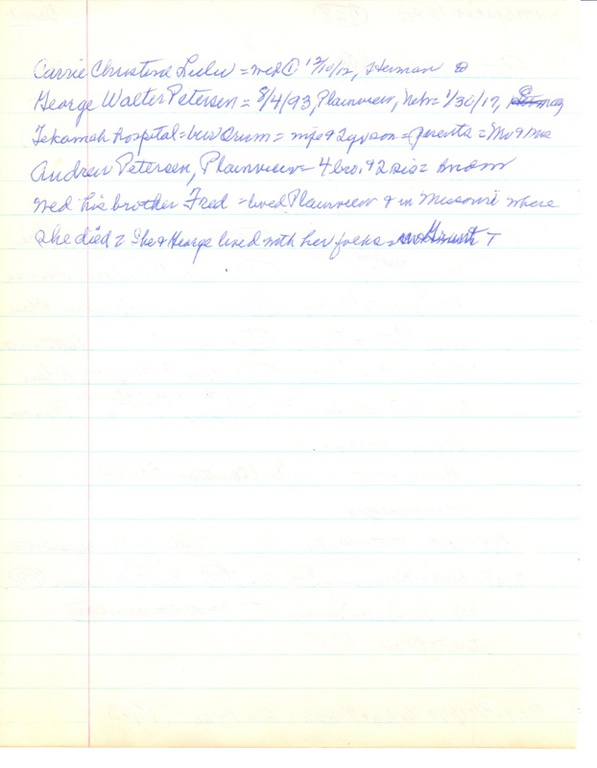 Carrie Christine Lulu = wed ① 12/10/12, Herman
George Walter Petersen = 8/4/93, Plainview, Nebr = 1/30/17,
Tekamah hospital = bur Orum = wife & 2 yr son = parents = Mr & Mrs
Andrew Petersen, Plainview = 4 bro. & 2 sis =
wed his brother Fred = lived Plainview & in Missouri where
she died = She & George lived with her folks